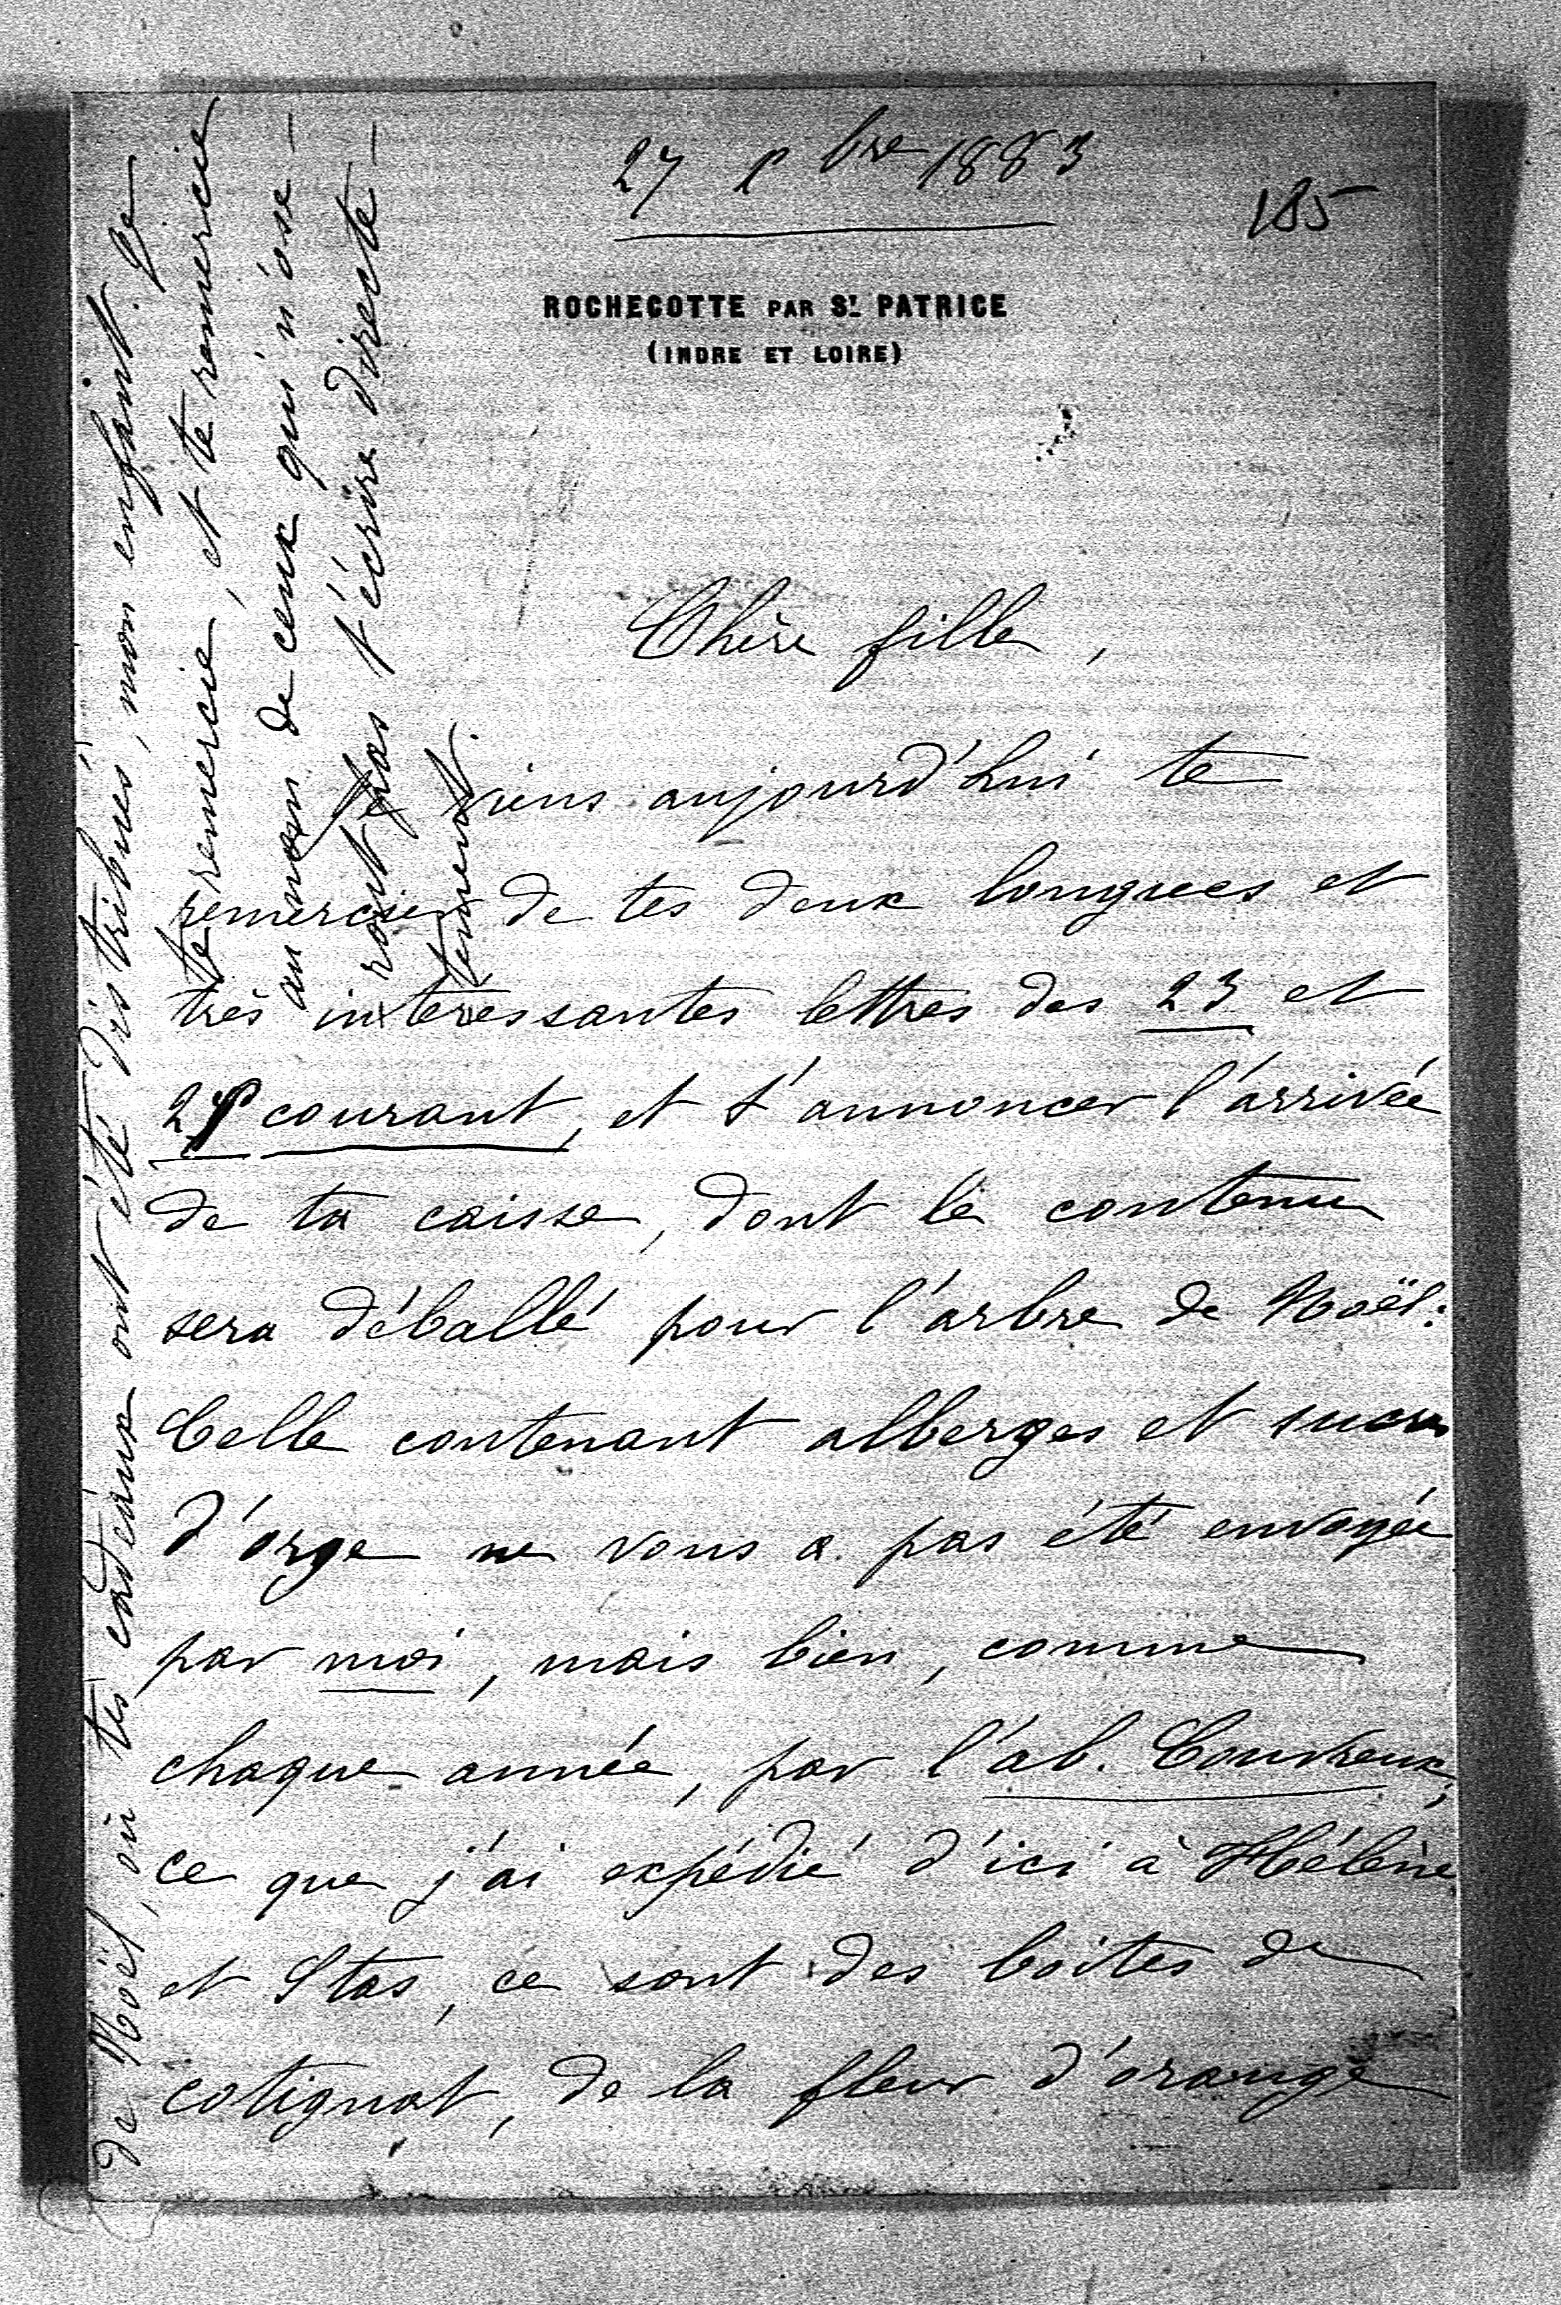 27 Xbre 1883
185
ROCHECOTTE PAR ST PATRICE
(INDRE ET LOIRE)
Chère fille,
Je viens aujourd'hui te
remercier de tes deux longues et
très intéressantes lettres des 23 et
courant, et t'annoncer l'arrivée
de ta caisse, dont le contenu
sera déballé pour l'arbre de Noël:
Celle contenant alberges et sucre
d'orge ne vous a pas été envoyée
par moi, mais bien, comme
chaque année, par l'ab. Couvreux;
ce que j'ai expédié d'ici à Hélène
et Stas, ce sont des boîtes de
cotignat, de la fleur d'orange
de Noël, où tes cadeaux ont été distribués, mon enfant. Je
te remercie, et te remercie
au nom de ceux qui n'ose-
ront pas t'écrire directe-
tement.